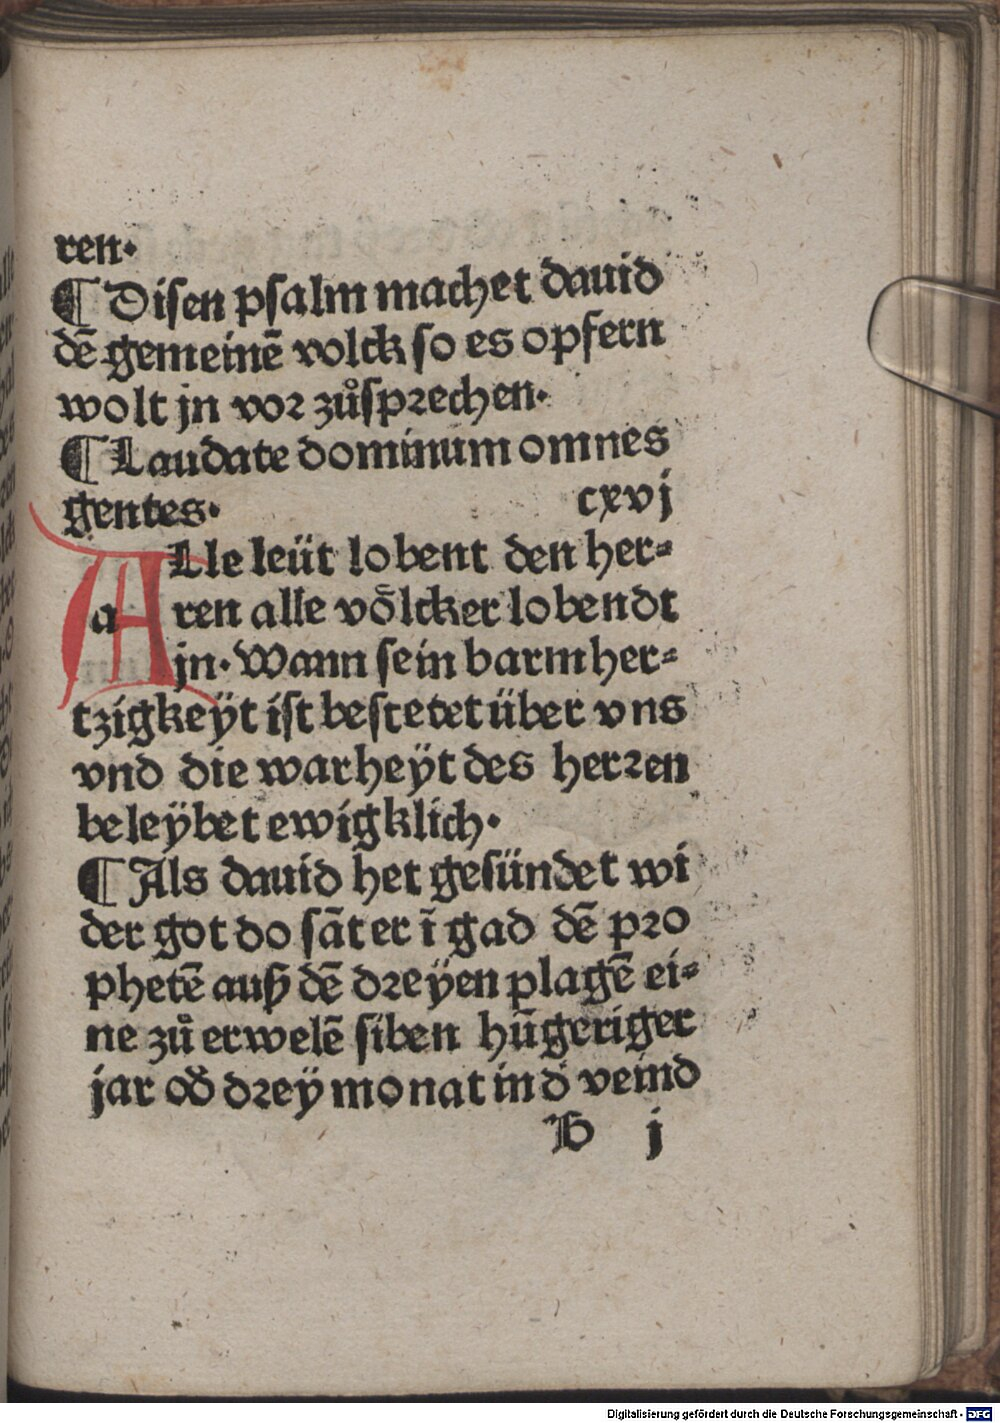 ren.
¶ Disen psalm machet dauid
dē gemeinē volck so es opfern
wolt jn vor zůsprechen.
¶ Laudate dominum omnes
gentes. cxvj
ALle leüt lobent den her⸗
aren alle vo̊lcker lobendt
jn. Wann sein barmher⸗
tzigkeÿt ist bestetet über vns
vnd die warheÿt des herren
beleÿbet ewigklich.
¶ Als dauid het gesündet wi
der got do sāt er ī gad dē pro
phetē auß dē dreÿen plagē ei⸗
ne zů erwelē siben hūgeriger
jar od̄ dreÿ monat in d̄ veind
B j
Digitalisierung gefördert durch die Deutsche Forschungsgemeinschaft - DFG